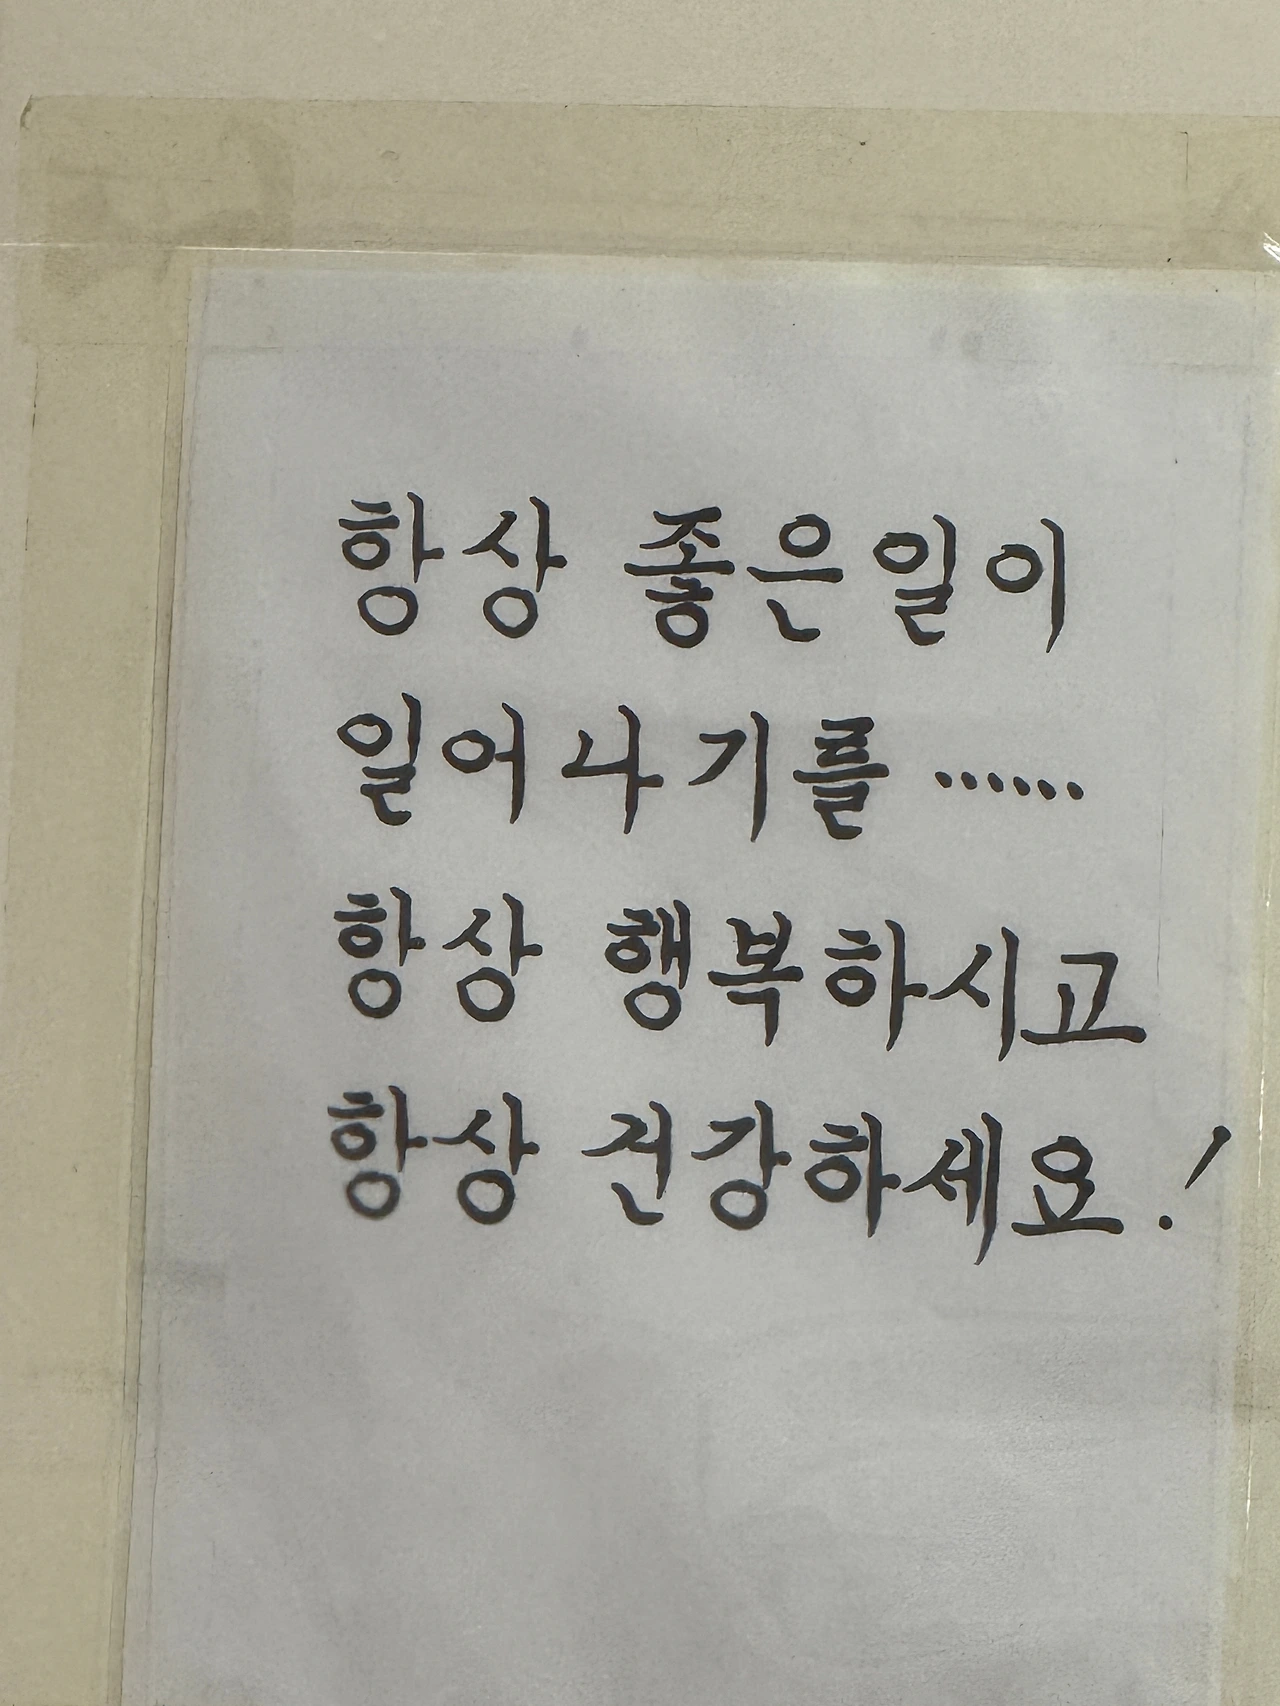 항상 좋은일이
일어나기를 ······
항상 행복하시고
항상 건강하세요!